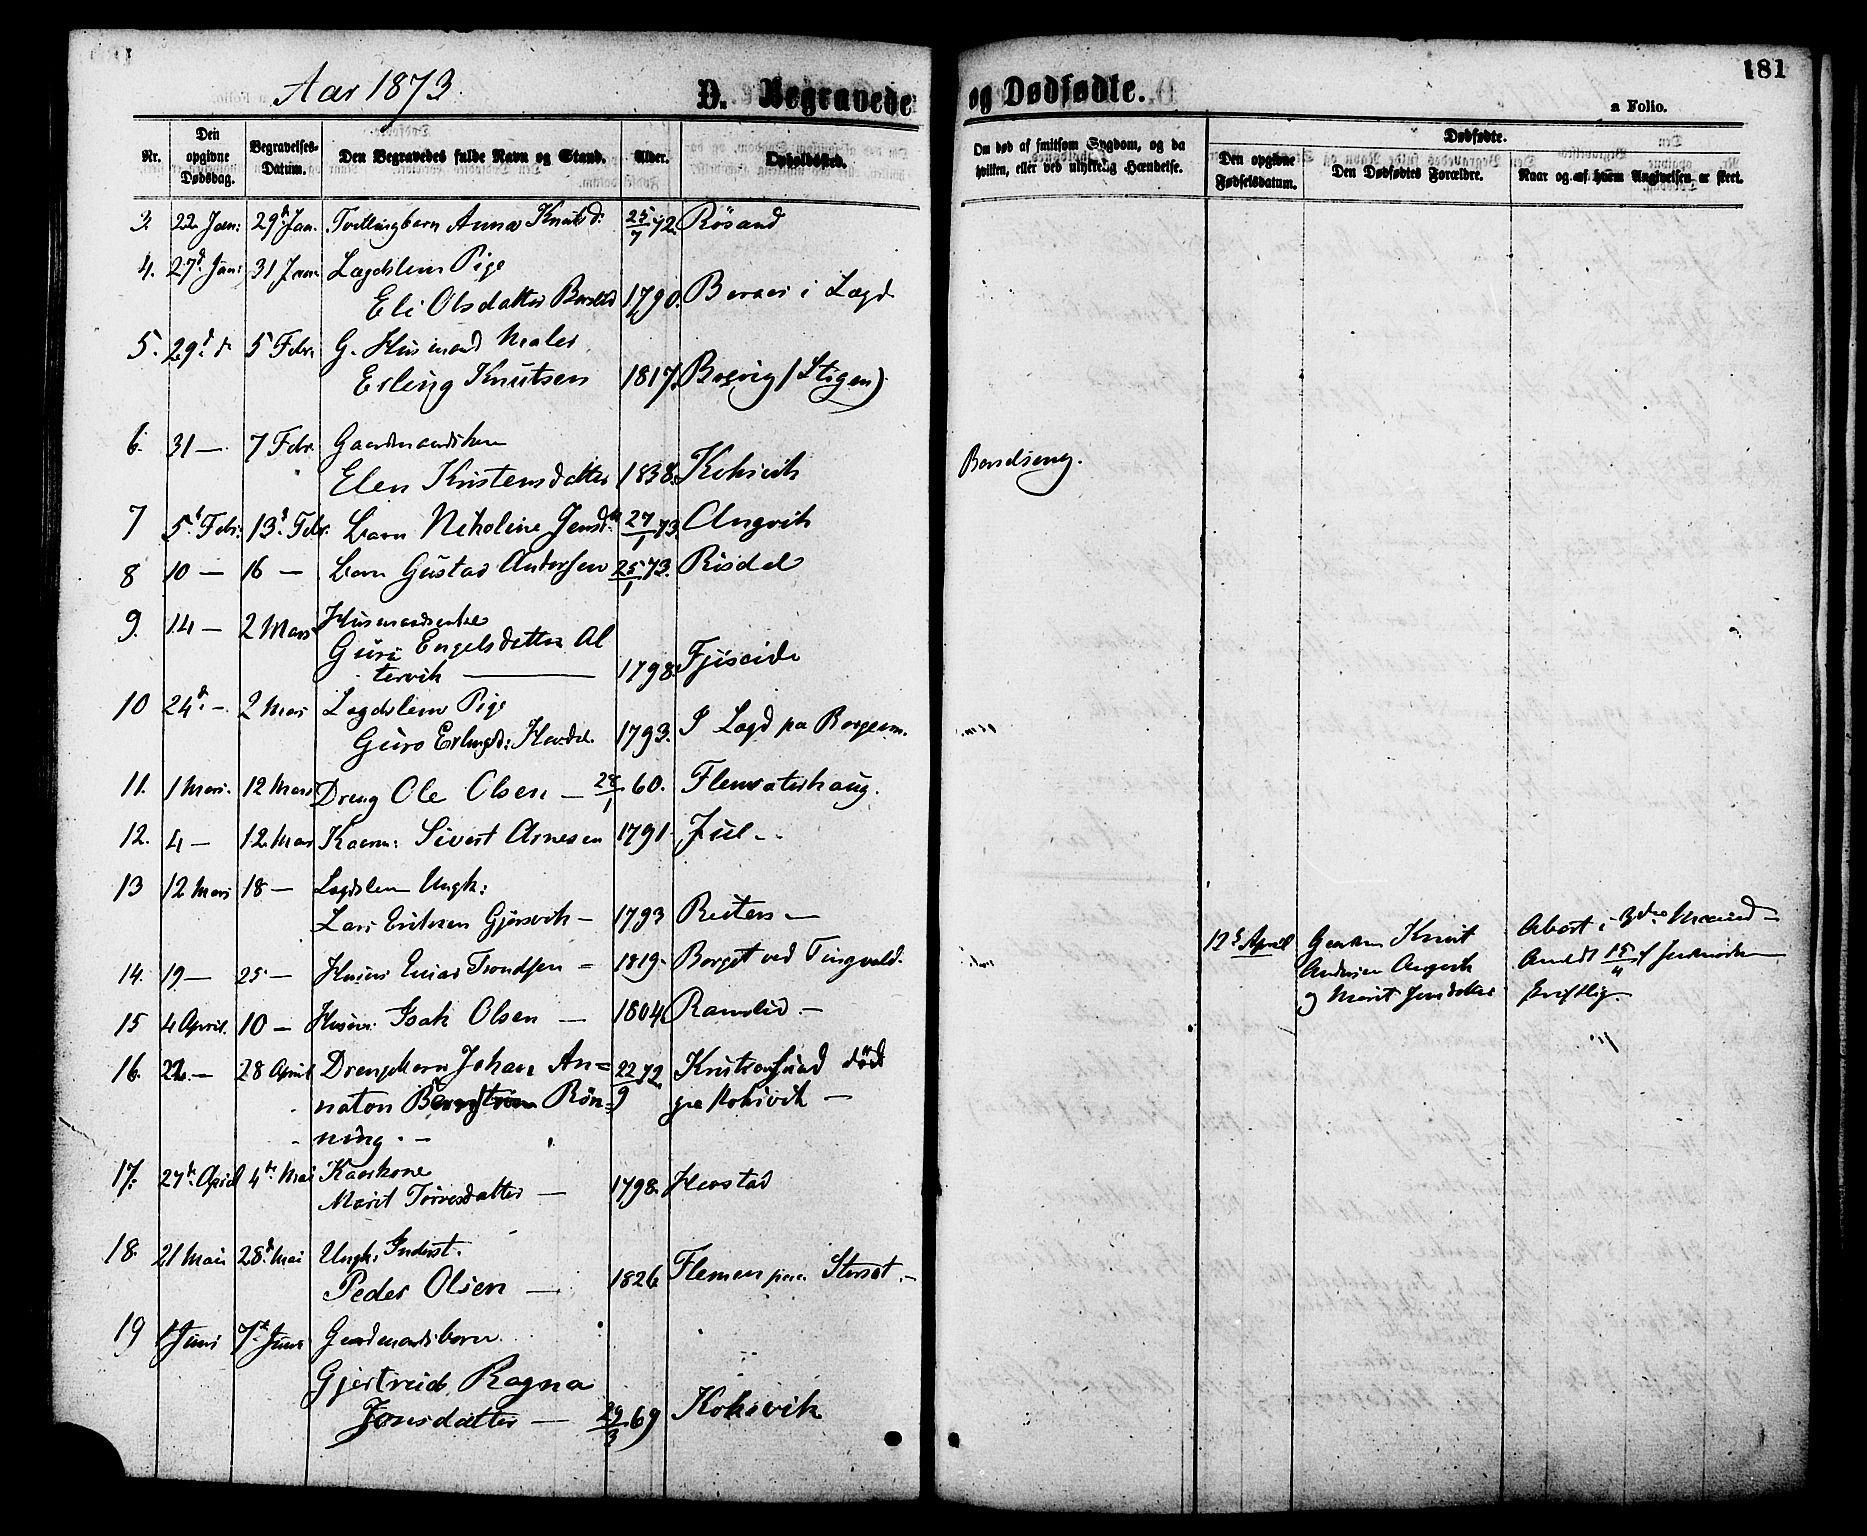 Aar 1873.
D. Begravede og Dødfødte.
181
a Folio.
Nr. Den opgivne Dødsdag. Begravelses-Datum. Den Begravedes fulde Navn og Stand. Alder. Opholdssted. Om død af smitsom Sygdom, og da hvilken, eller ved ulykkelig Hændelse. Dødfødte. Den opgivne Fødselsdatum. Den Dødfødtes Forældre. Naar og af hvem Angivelsen er skeet.
3. 22 Jan: 29d Jan. Tvillingbarn Anna Knutsd: 25/7 72. Rösand
4. 27d Jan: 31 Jan. Lægdslem Pige
Eli Olsdatter 1790. i Lægd
5. 29d 5 Febr. G. Husmand Maler
Erling Knutsen 1817. Bogvig (Stigen)
6. 31 — 7 Febr. Gaardmandskone
Elen Kristensdatter 1838. Koksvik Barselseng.
7 5t Febr: 13d Febr. Barn Nikoline Jensdtr 27/1 73. Angvik
8 10 — 16 — Barn Gustav Andersen 25/1 73. Risdal
9. 14 — 2 Mars Husmandsenke
Guri Engelsdatter Al
tervik — 1798. Fjöseide
10 24d — 2 Mars Lægdslem Pige
Guro Erlingsd: 1793. I Lægd pa Bergem.
11. 1 Mars. 12 Mars Dreng Ole Olsen — 28/1 60. Flemsæterhaug.
12. 4 — 12 Mars Kaarm: Sivert Arnesen 1791. Jul —
13 12 Mars 18 — Lægdslem Ungk:
Lars Eriksen Gjersvik — 1793 Reiten —
14. 19 — 25 — Husm: Trondsen — 1819. Berget ved Tingvold.
12d April Gaardm Knut Abort i 3die Maaned —
Andersen Angvik Anmeldt 15/4 af Jordmoderen
og Marit Jensdatter skriftlig.
15 4 April. 10 — Husm: Isak Olsen — 1804. Ramslid. —
16. 22. — 28 April Drengebarn Johan An= 22/9 72. Kristiansund död
naton Bernstrøm Rön= paa Koksvik —
ning. —
17. 27d April 4d Mai Kaarkone
Marit Torresdatter — 1798. Hevstad
18. 21 Mai 28d Mai Ungk: Inderst.
Peder Olsen — 1826 Flemen
19 1 Juni 7d Juni Gaardmandsbarn
Gjertrud Ragna
Jonsdatter — 29/3 69 Koksvik